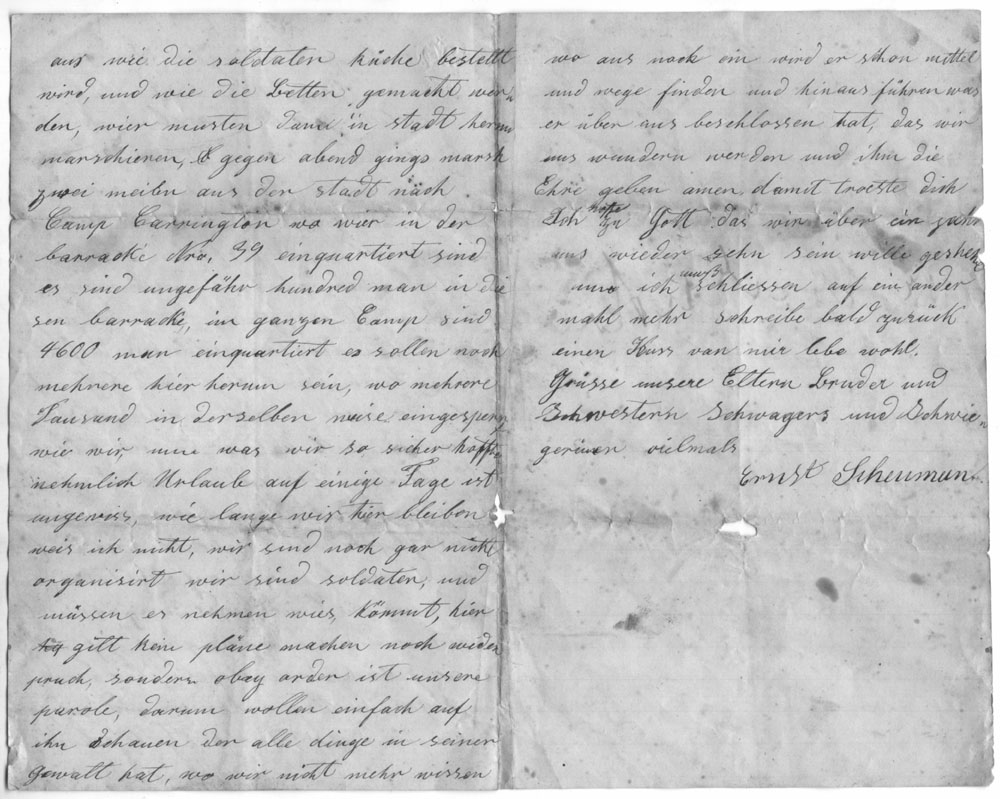 aus wie die soldaten küche bestellt
wird, und wie die Betten gemacht wer-
den, wier musten dann in stadt herum
marschieren, & gegen abend gings marsh
zwei meiln aus der stadt nach
Camp Carrington wo wier in der
barracke Nro. 39 einquartiert sind
es sind ungefähr hundred man in die
sen barracke, im ganzen Camp sind
4600 man einquartiert es sollen noch
mehrere hier herum sein, wo mehrere
Tausand in derselben weise eingespern
wie wir, nun was wir so sicher hofften
nehmlich Urlaub auf einige Tage ist
ungewiss, wie lange wir hier bleiben
weis ich nicht, wir sind noch gar nicht
organisirt wir sind soldaten, und
müssen es nehmen wies kömmt, hier
gilt kein pläne machen noch wieder
pruch, sondern obey order ist unsere
parole, darum wollen einfach auf
ihn schauen der alle dinge in seiner
gewalt hat, wo wir nicht mehr wissen
wo aus noch ein wird er schon mittel
und wege finden und hinaus führen was
er über uns beschlossen hat, das wir
uns wundern werden und ihm die
Ehre geben amen damit troeste dich
Ich hoffe zu Gott das wir über ein jahr
uns wieder sehn sein wille geshehe
nun ich muß schliessen auf ein ander
mahl mehr schreibe bald zurück
einen Kuss van mir lebe wohl.
Grüsse unsere Eltern Bruder und
Schwestern Schwagers und Schwie-
gerinen vielmals
Ernst Scheuman.